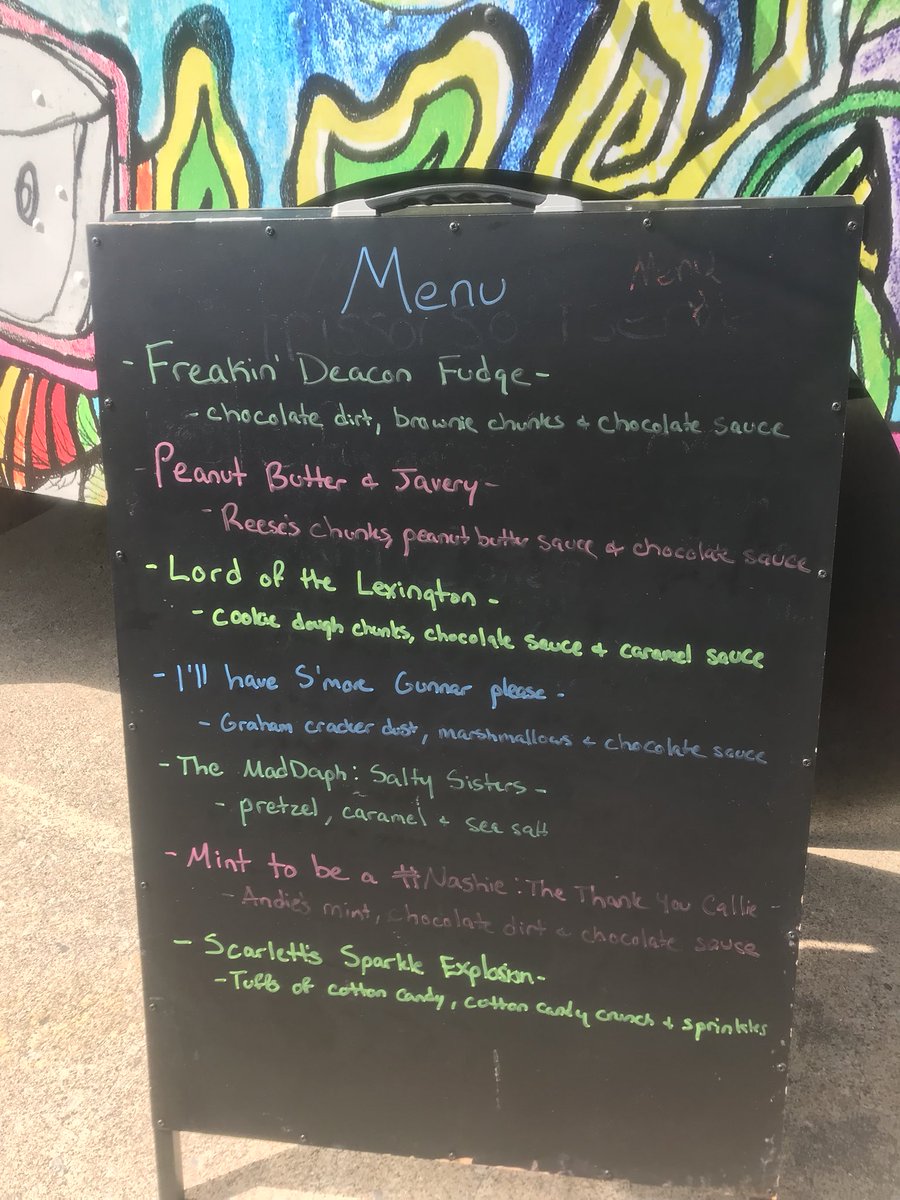 Menu
Menu
- Freakin' Deacon Fudge -
- chocolate dirt, brownie chunks & chocolate sauce
- Peanut Butter & Javery -
- Reese's chunks, peanut butter sauce & chocolate sauce
- Lord of the Lexington -
- cookie dough chunks, chocolate sauce & caramel sauce
- I'll have S'more Gunnar please -
- Graham cracker dust, marshmallows & chocolate sauce
- The MadDaph: Salty Sisters -
- pretzel, caramel & sea salt
- Mint to be a #Nashie: The Thank You Callie -
- Andie's mint, chocolate dirt & chocolate sauce
- Scarlett's Sparkle Explosion -
- Tuffs of cotton candy, cotton candy crunch & sprinkles